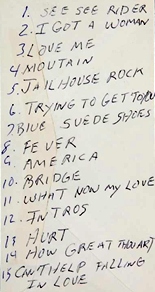 1. SEE SEE RIDER
2. I GOT A WOMAN
3 LOVE ME
4 MOUTAIN
5. JAILHOUSE ROCK
6. TRYING TO GET TO YOU
7 BLUE SUEDE SHOES
8. FEVER
9. AMERICA
10. BRIDGE
11. WHAT NOW MY LOVE
12. INTROS
13 HURT
14 HOW GREAT THOU ART
15 CAN'T HELP FALLING
IN LOVE